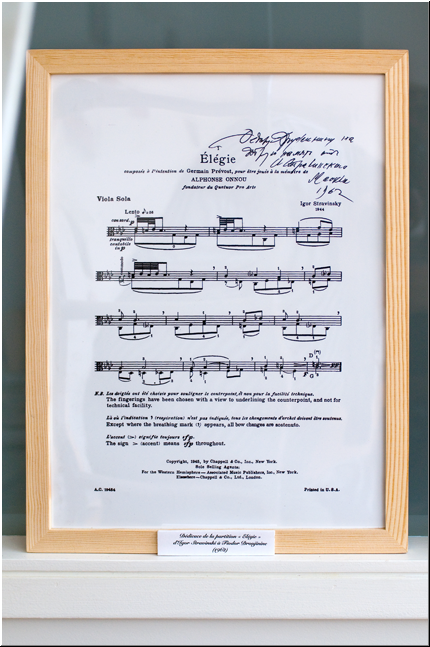 Федору Дружинину на
добрую память от
И Стравинского
Москва
1962
Élégie
composée à l'intention de Germain Prévost, pour être jouée à la mémoire de
ALPHONSE ONNOU
fondateur du Quatuor Pro Arte
Viola Sola
Igor Stravinsky
1944
Lento
con sord.
tranquillo
cantabile
N.B. Les doigtés ont été choisis pour souligner le contrepoint, et non pour la facilité technique.
The fingerings have been chosen with a view to underlining the counterpoint, and not for
technical facility.
Là où l'indication ’ (respiration) n'est pas indiquée, tous les changements d'archet doivent être soutenus.
Except where the breathing mark (’) appears, all bow changes are sostenuto.
L'accent (>) signifie toujours sfp.
The sign > (accent) means sfp throughout.
Copyright, 1945, by Chappell & Co., Inc., New York.
Sole Selling Agents:
For the Western Hemisphere— Associated Music Publishers, Inc., New York.
Elsewhere— Chappell & Co., Ltd., London.
A.C. 19454
Printed in U.S.A.
Dédicace de la partition « Elégie »
d'Igor Stravinski à Fiodor Droujinine
(1962)